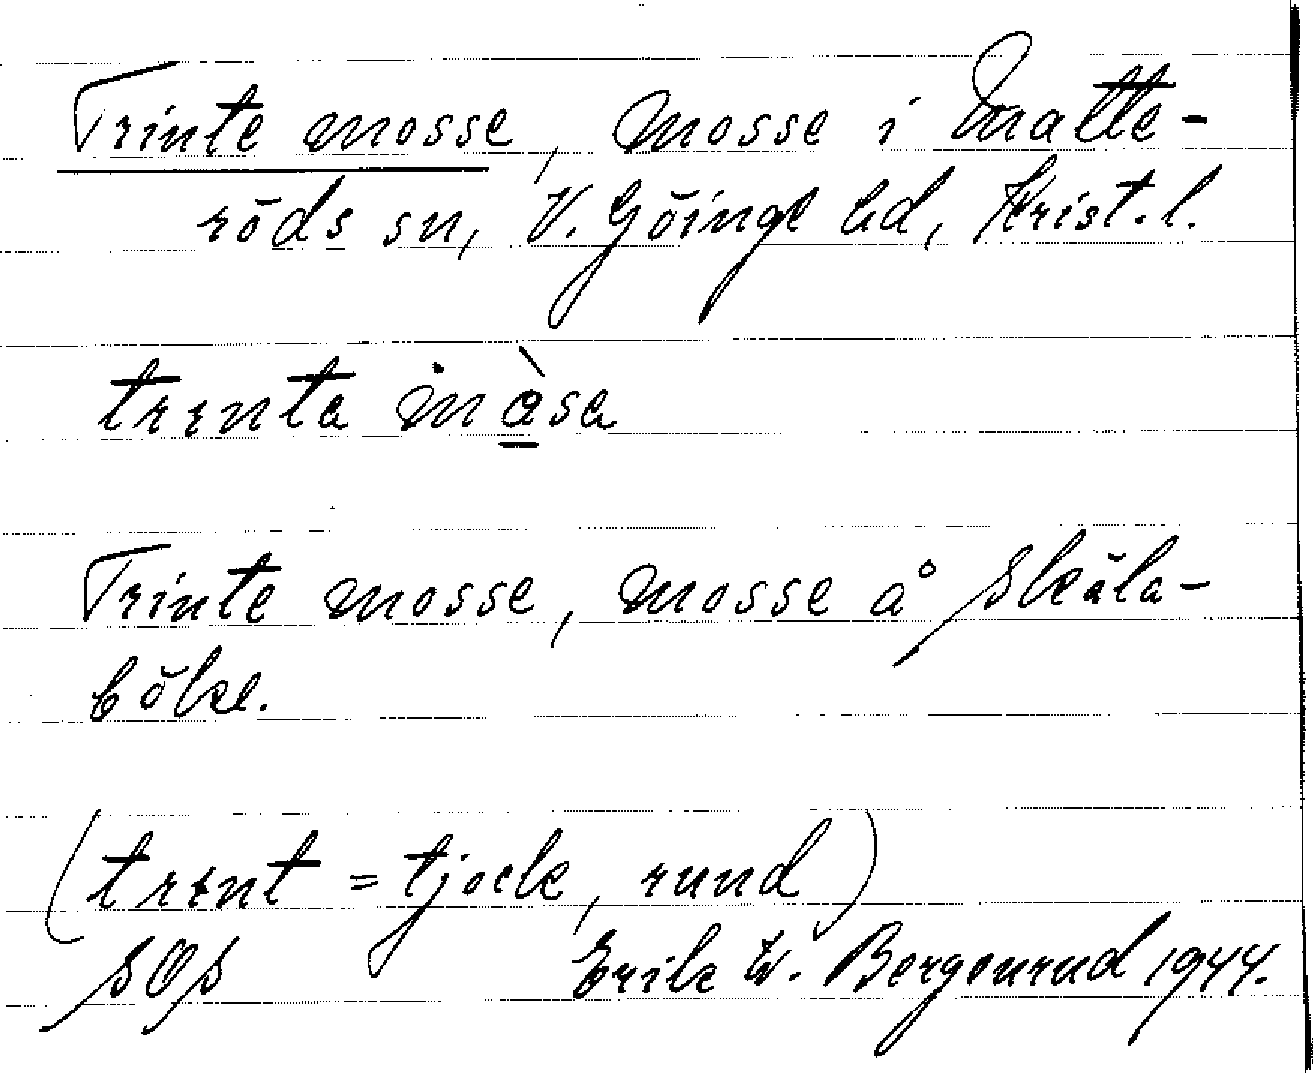 Trinte mosse, mosse i Matte-
röds sn, V. Göinge hd, Krist. l.
trenta màsa
Trinte mosse, mosse å Skåla-
böke.
(trent = tjock, rund)
Erik W. Bergenrud 1944.